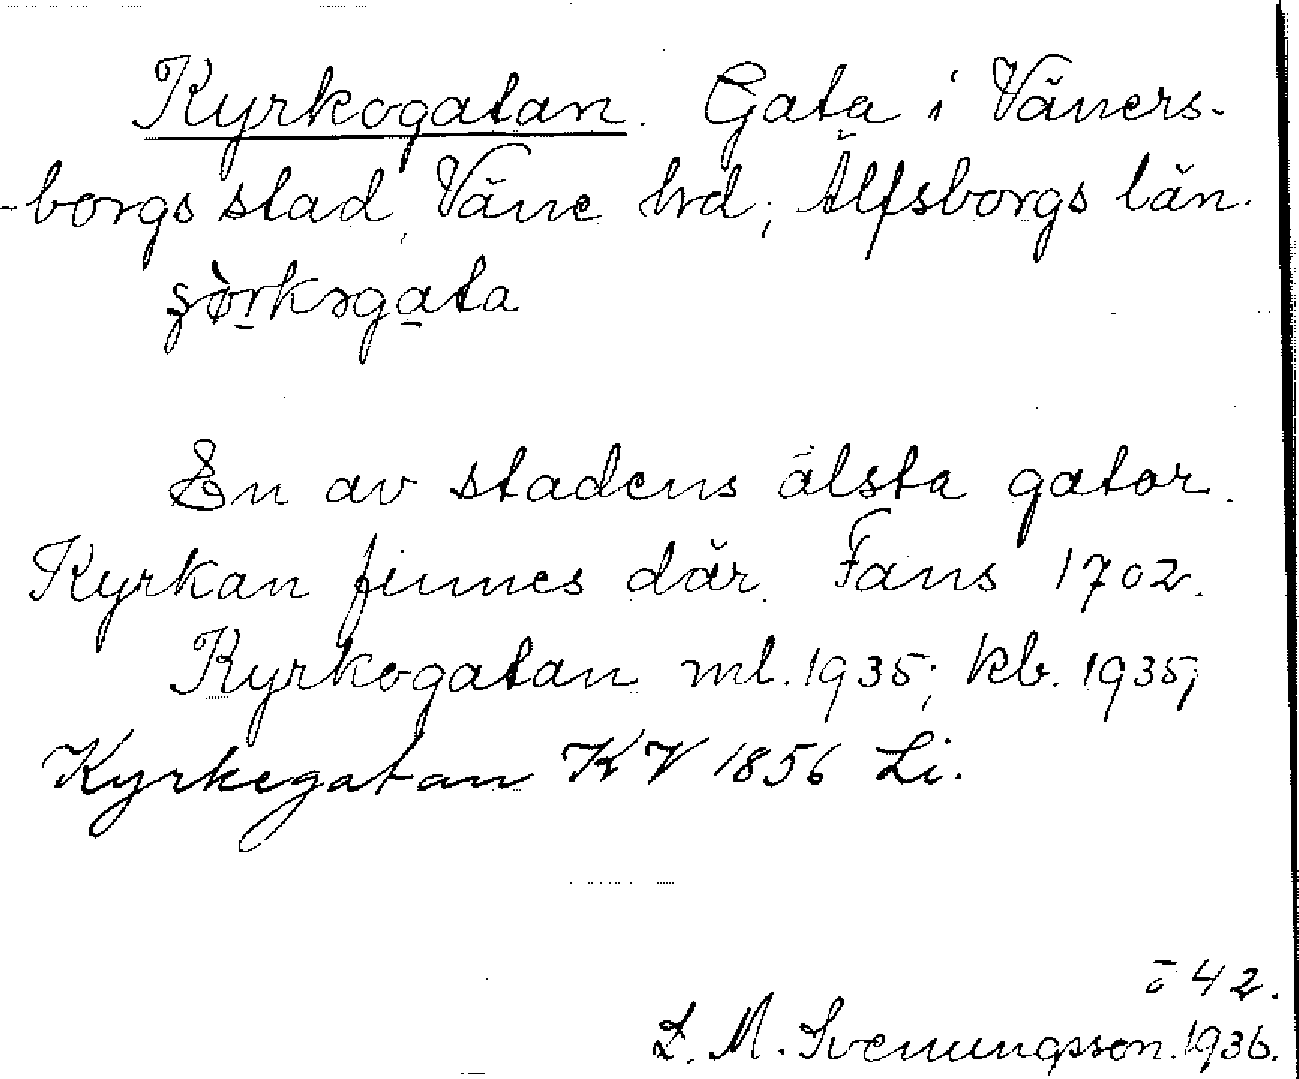 Kyrkogatan. Gata i Väners-
-borgs stad, Väne hrd; Älfsborgs län.
En av stadens älsta gator.
Kyrkan finnes där. Fans 1702.
Kyrkogatan ml. 1935; kb. 1935;
Kyrkegatan KV 1856 Li.
42.
L. M. Svenungsson. 1936.